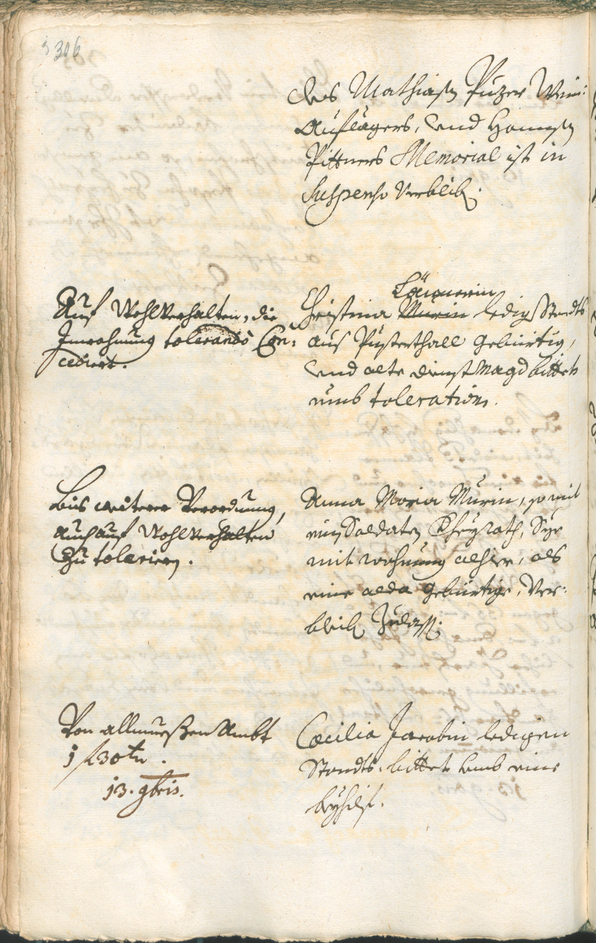 306
des Mathiaß Puzer Wein:
Auflegers, und Hannß
Pittners Memorial ist in
Suspenso Verblib.
Auf Wohlverhalten, die
Innwohnung tolerando Con:
cediert.
Löwnerin
Christina Murin ledig Standts
aus Pusterthall gebürtig,
und alte dienst Magd bittet
umb toleration.
Bis weitere Verordnung,
auch auf Wohlverhalten
zu tolerirn.
Anna Maria Murin, so mit
ein Soldaten verheyrath, Sye
mit wohnung alhier, als
eine alda gebürtige, Ver:
bleib Zulass.
Von allmueßen Ambt
1 f 30 kr.
13. 9bris.
Cæcilia Jacobin ledigen
Standts, bittet umb eine
beyhilf.